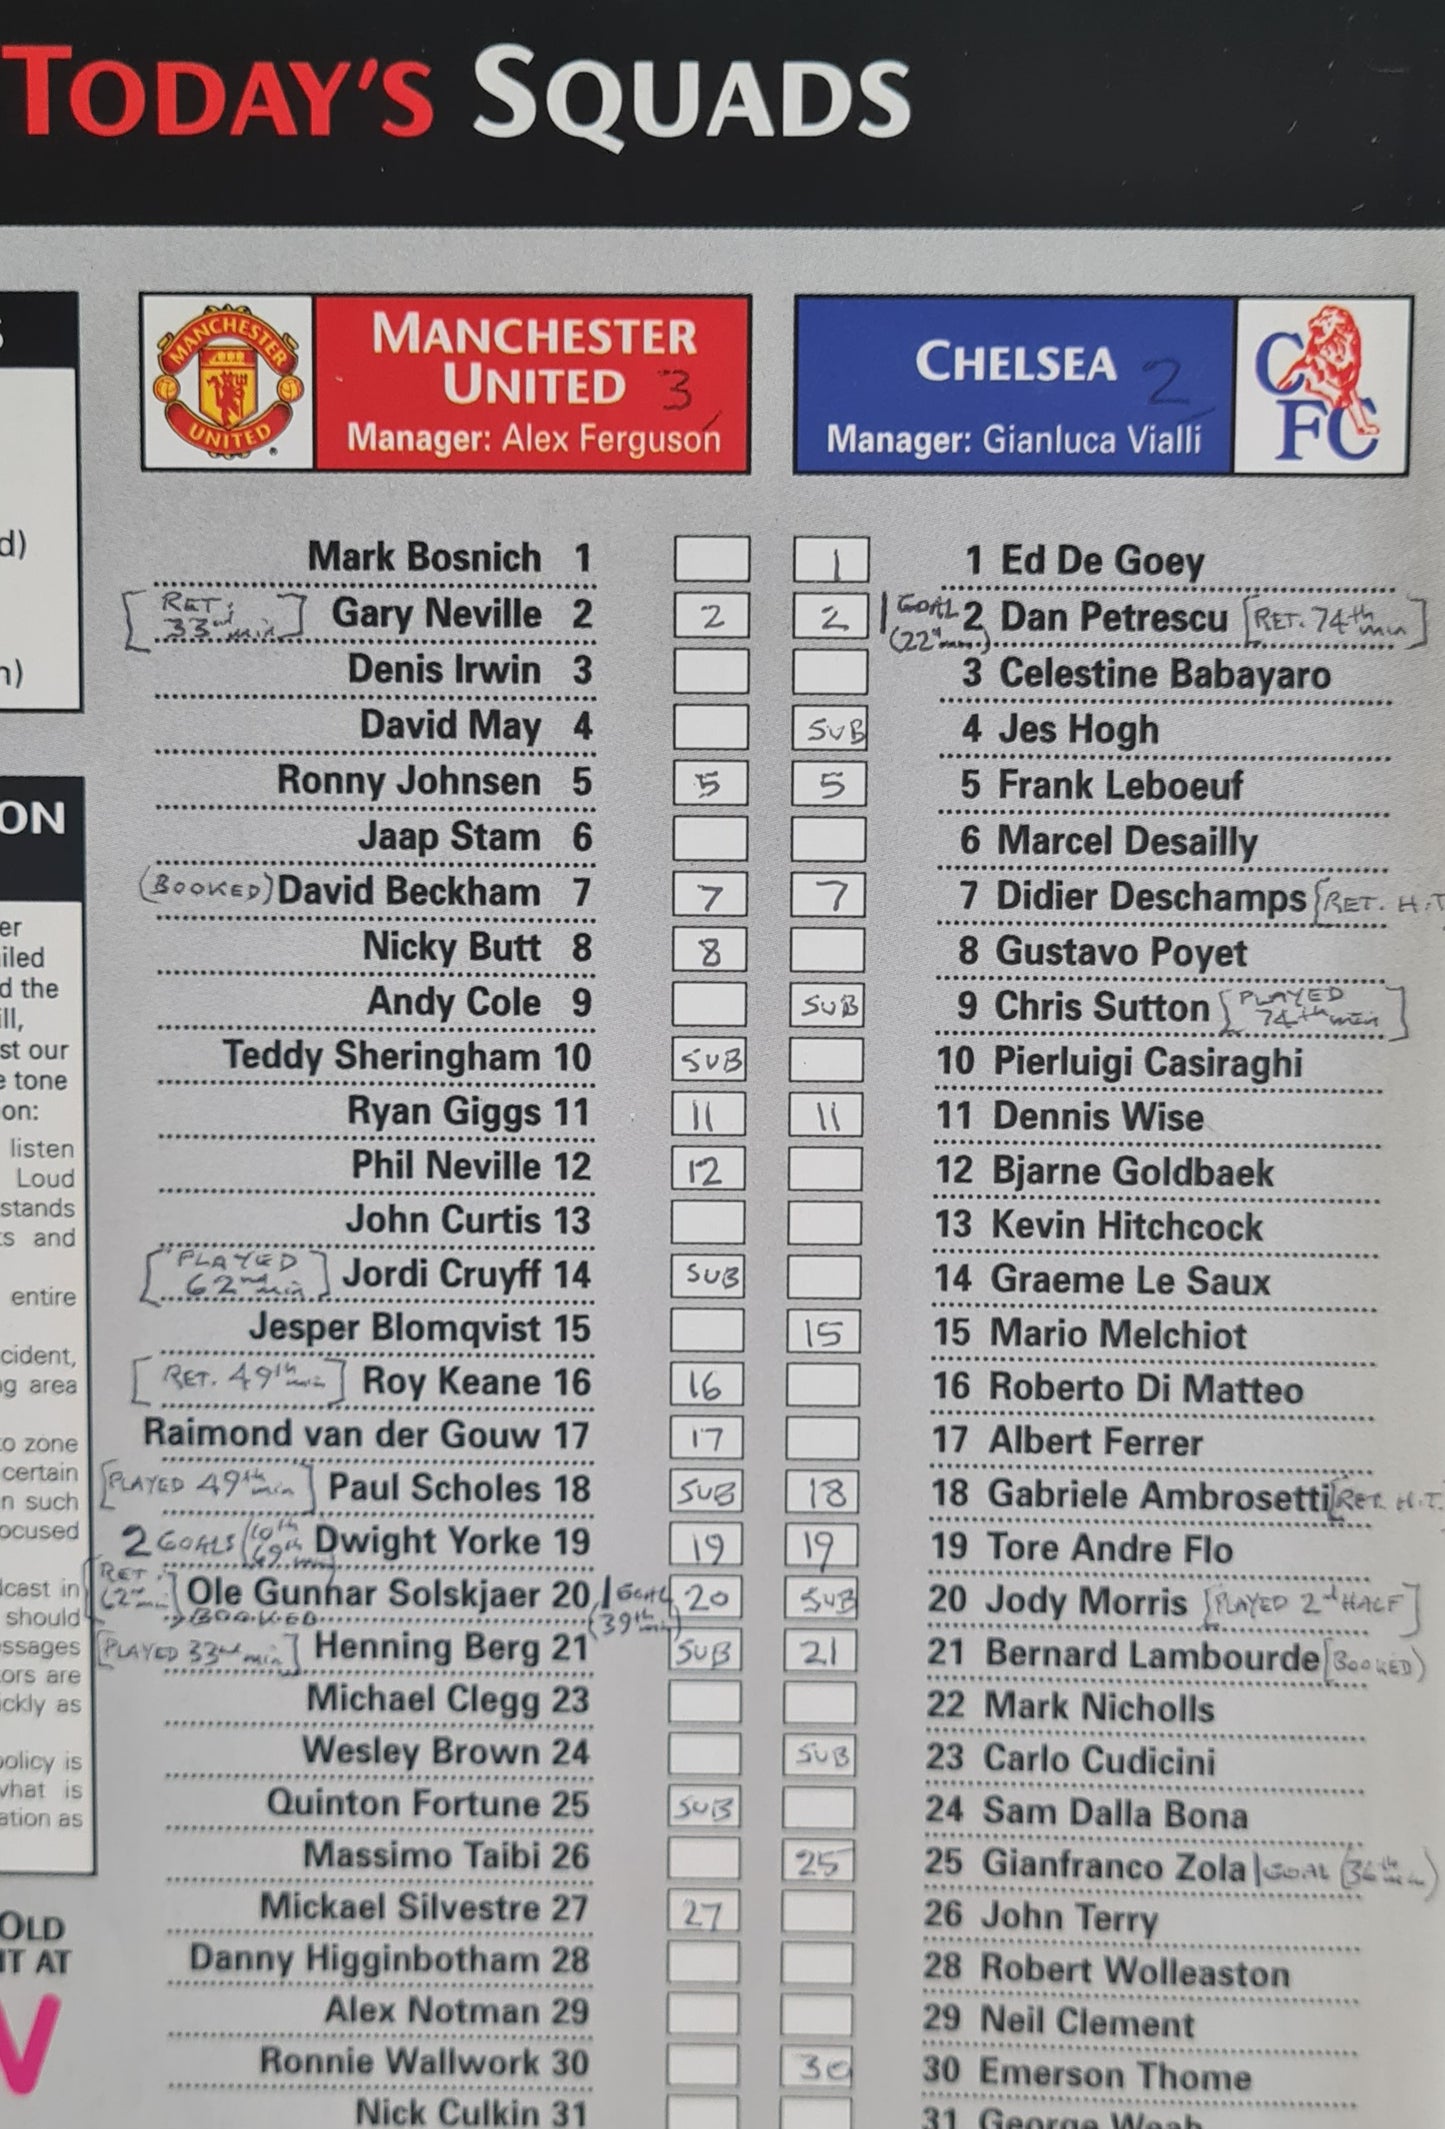 TODAY'S SQUADS
MANCHESTER
UNITED 3
Manager: Alex Ferguson
MANCHESTER
UNITED
CHELSEA 2
Manager: Gianluca Vialli
CFC
Mark Bosnich 1
[RET: 33rd min] Gary Neville 2 2
Denis Irwin 3
David May 4
Ronny Johnsen 5 5
Jaap Stam 6
(BOOKED) David Beckham 7 7
Nicky Butt 8 8
Andy Cole 9
Teddy Sheringham 10 SUB
Ryan Giggs 11 11
Phil Neville 12 12
John Curtis 13
[PLAYED 62nd min] Jordi Cruyff 14 SUB
Jesper Blomqvist 15
[RET. 49th min] Roy Keane 16 16
Raimond van der Gouw 17 17
[PLAYED 49th min] Paul Scholes 18 SUB
2 GOALS (10th 69th min) Dwight Yorke 19 19
[RET: 62nd min] Ole Gunnar Solskjaer 20 1 GOAL (39th min) 20
BOOKED
[PLAYED 33rd min] Henning Berg 21 SUB
Michael Clegg 23
Wesley Brown 24
Quinton Fortune 25 SUB
Massimo Taibi 26
Mickael Silvestre 27 27
Danny Higginbotham 28
Alex Notman 29
Ronnie Wallwork 30
Nick Culkin 31
1 1 Ed De Goey
2 1 GOAL (22nd min) 2 Dan Petrescu [RET. 74th min]
3 Celestine Babayaro
SUB 4 Jes Hogh
5 5 Frank Leboeuf
6 Marcel Desailly
7 7 Didier Deschamps [RET. H.T
8 Gustavo Poyet
SUB 9 Chris Sutton [PLAYED 74th min]
10 Pierluigi Casiraghi
11 11 Dennis Wise
12 Bjarne Goldbaek
13 Kevin Hitchcock
14 Graeme Le Saux
15 15 Mario Melchiot
16 Roberto Di Matteo
17 Albert Ferrer
18 18 Gabriele Ambrosetti [RET. H.T.
19 19 Tore Andre Flo
SUB 20 Jody Morris [PLAYED 2nd HALF]
21 21 Bernard Lambourde (BOOKED)
22 Mark Nicholls
SUB 23 Carlo Cudicini
24 Sam Dalla Bona
25 25 Gianfranco Zola 1 GOAL (36th min)
26 John Terry
28 Robert Wolleaston
29 Neil Clement
30 30 Emerson Thome
31 George Weah
d)
ON
d the
st our
e tone
on:
listen
Loud
stands
s and
entire
g area
o zone
certain
n such
should
OLD
IT AT